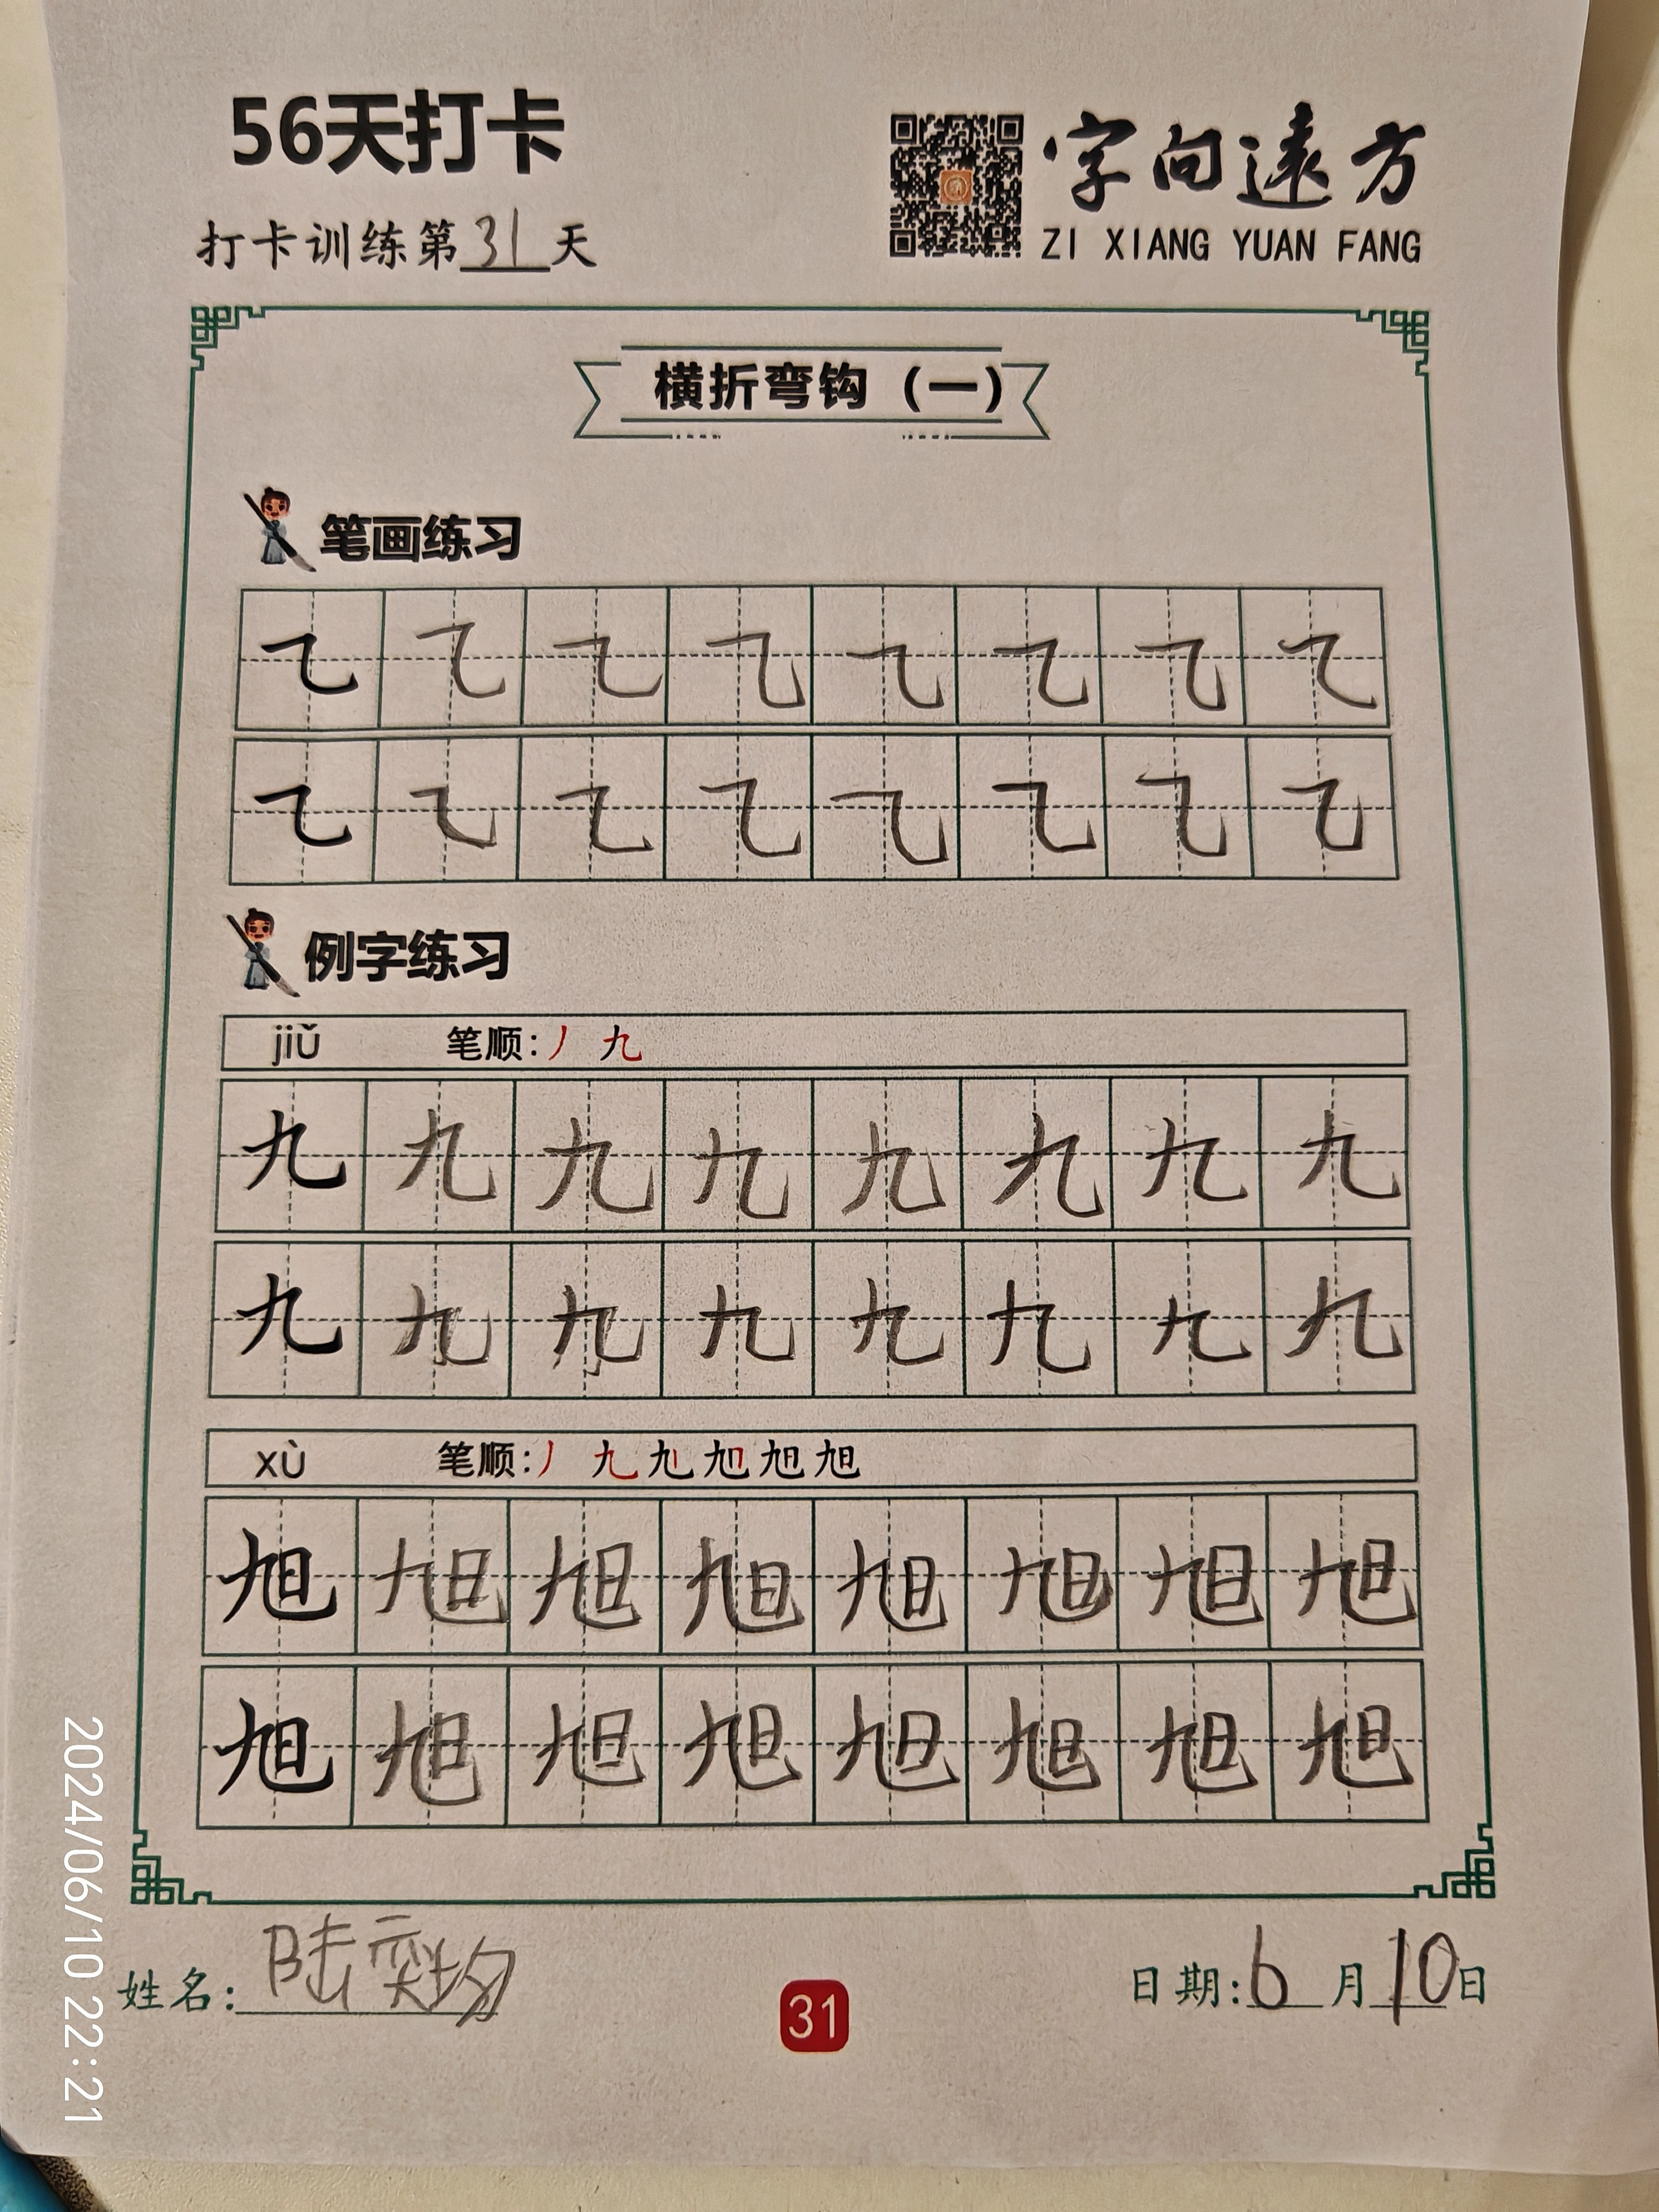 56天打卡
字向遠方
打卡训练第31天
ZI XIANG YUAN FANG
横折弯钩（一）
笔画练习
㇈ ㇈ ㇈ ㇈ ㇈ ㇈ ㇈ ㇈
㇈ ㇈ ㇈ ㇈ ㇈ ㇈ ㇈ ㇈
例字练习
jiǔ 笔顺：丿 九
九 九 九 九 九 九 九 九
九 九 九 九 九 九 九 九
xù 笔顺：丿 九 旭 旭 旭 旭
旭 旭 旭 旭 旭 旭 旭 旭
旭 旭 旭 旭 旭 旭 旭 旭
姓名：陆奕均
31
日期：6月10日
2024/06/10 22:21